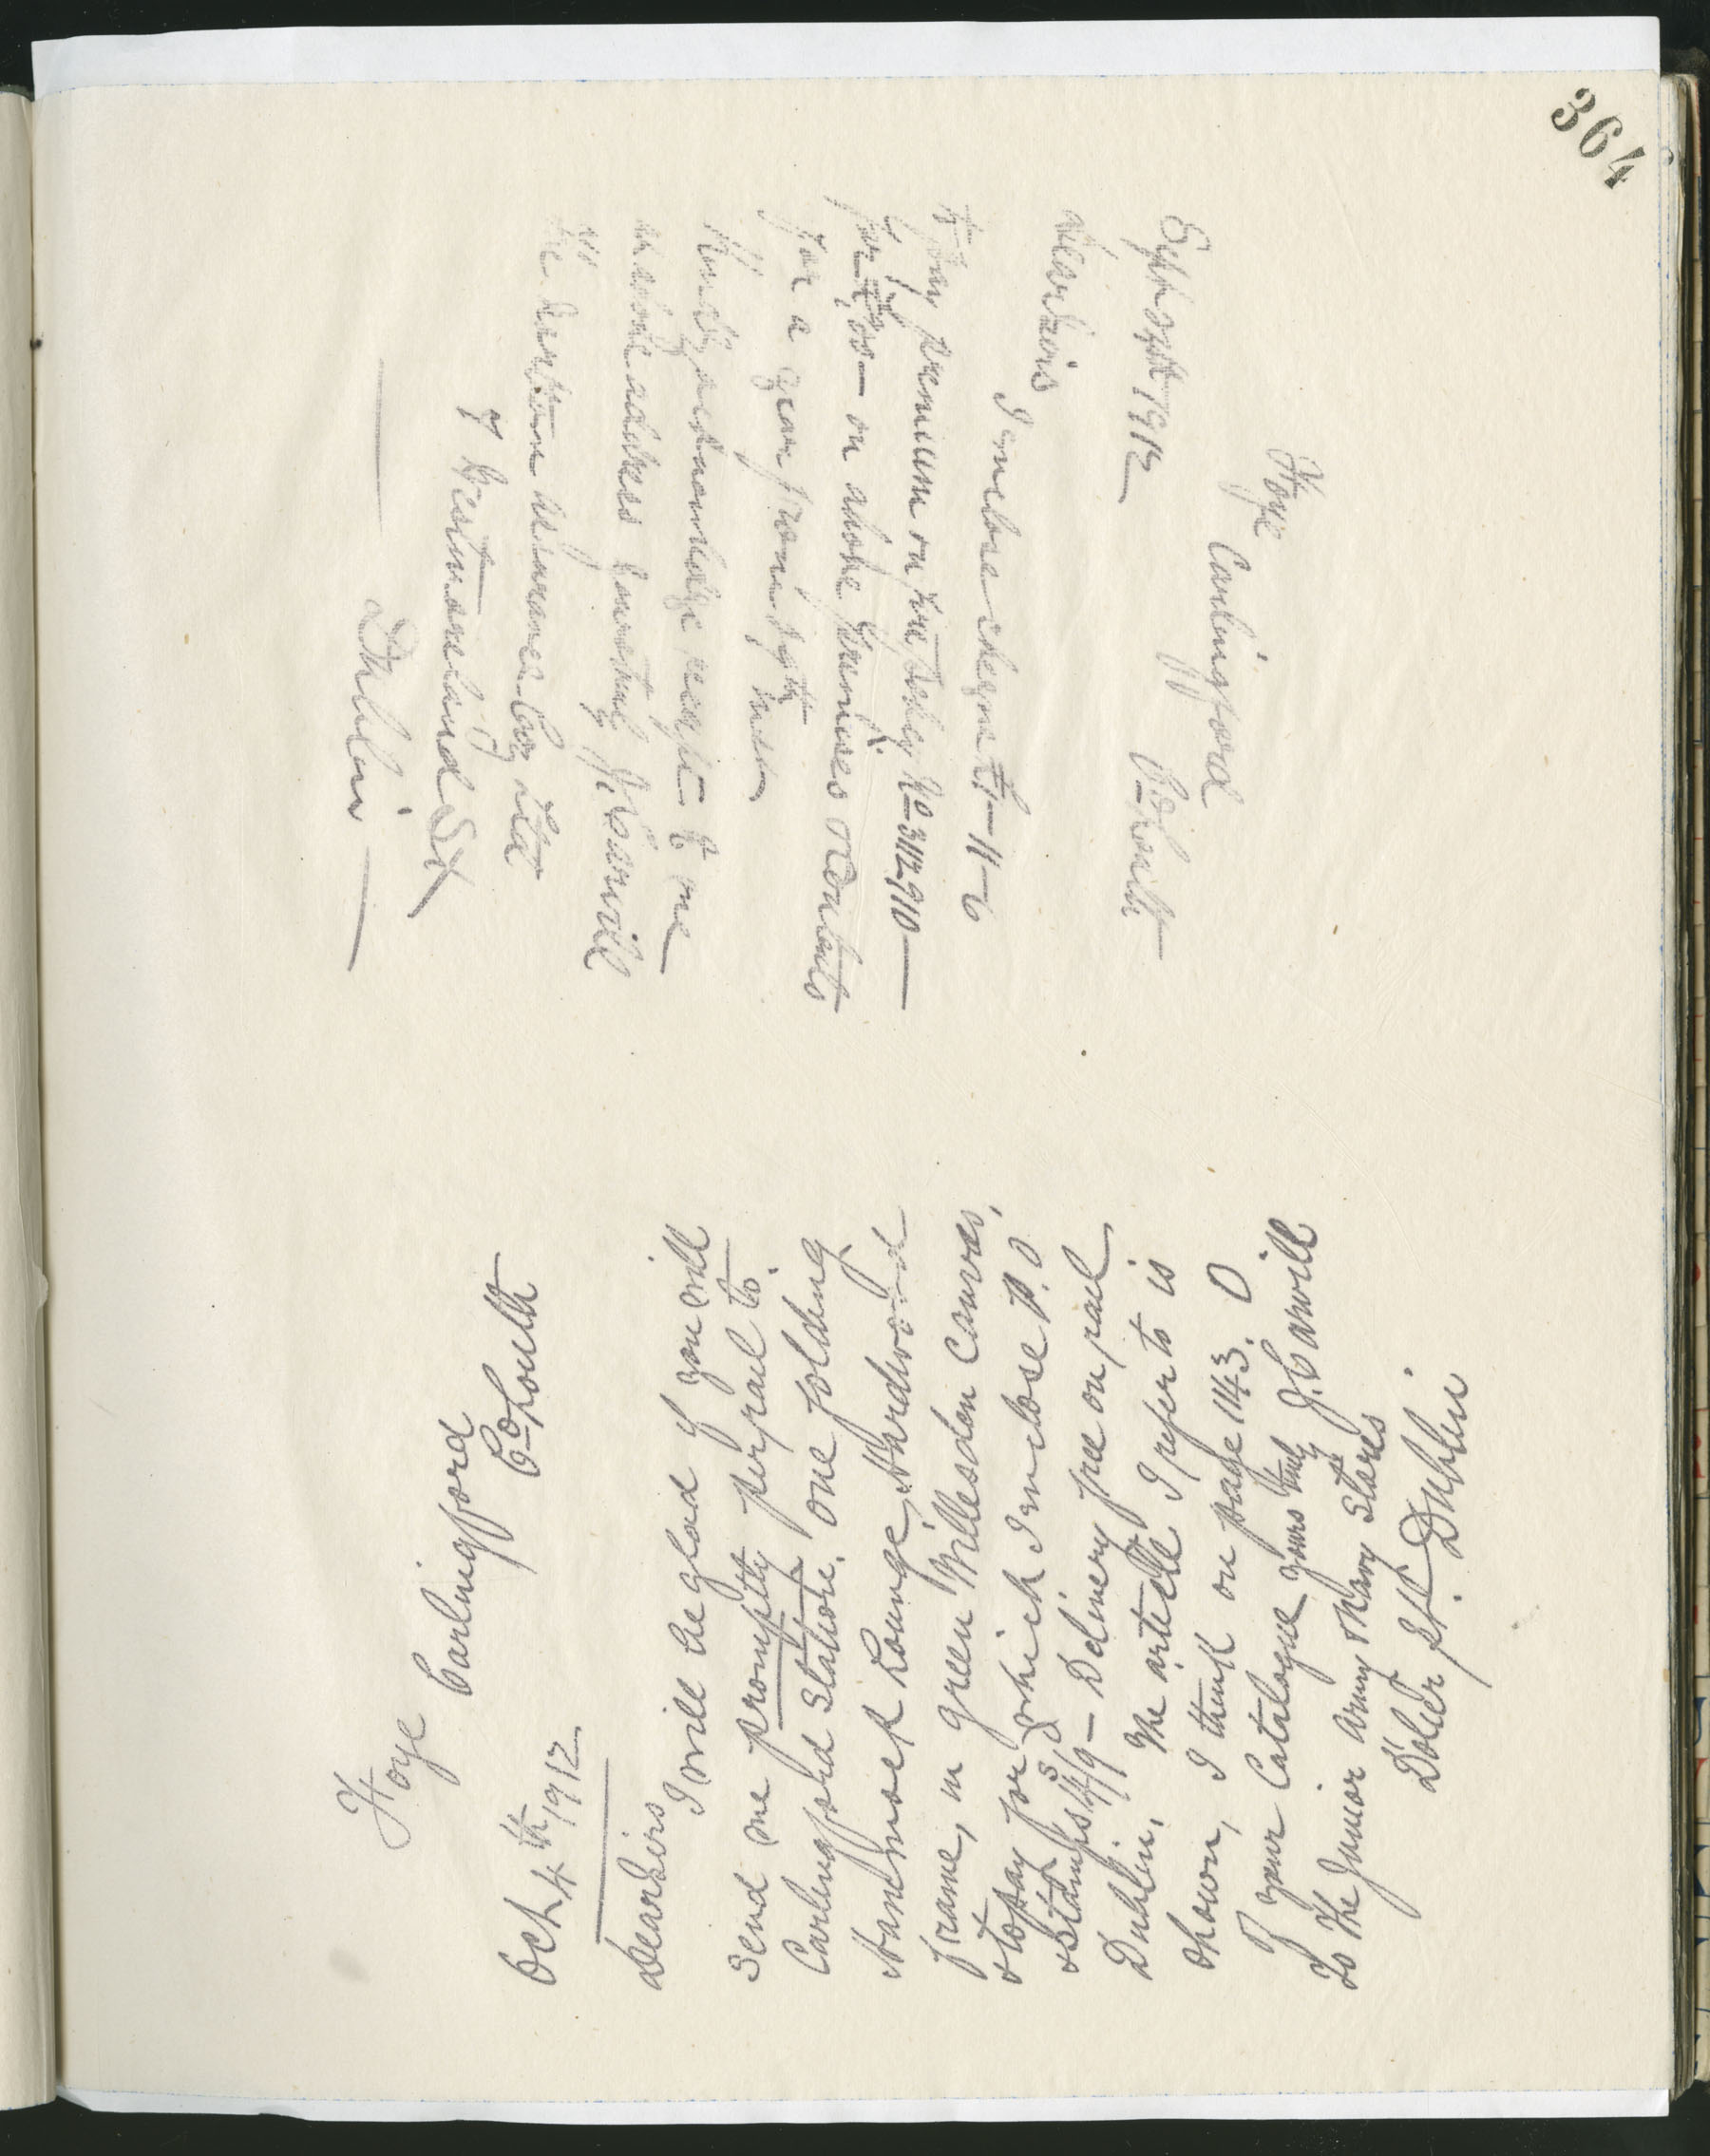 364
Foye
Carlingford
Co Louth
Septr 1912
Dear Sirs
I enclose cheque £1-11-6
my premium on Fire Policy No 3112910
for on above premises & contents
for a year from 29th inst
Kindly acknowledge receipt to me
as above address yours truly J. Carvill
The Assurance Coy Ltd
7 Westmoreland St
Dublin
Foye
Carlingford
Co Louth
Oct 4th 1912
Dear Sirs
I will be glad if you will
send me promptly per rail to
Carlingford Station. One folding
Hammock Lounge, Hardwood
frame, in green Willesden Canvas,
& to pay for which I enclose P.O
& stamps 4s/9d – Delivery free on rail
Dublin. The article I refer to is
shown, I think on page 1143.
of your Catalogue yours truly J. Carvill
To The Junior Army & Navy Stores
D'Olier St. Dublin